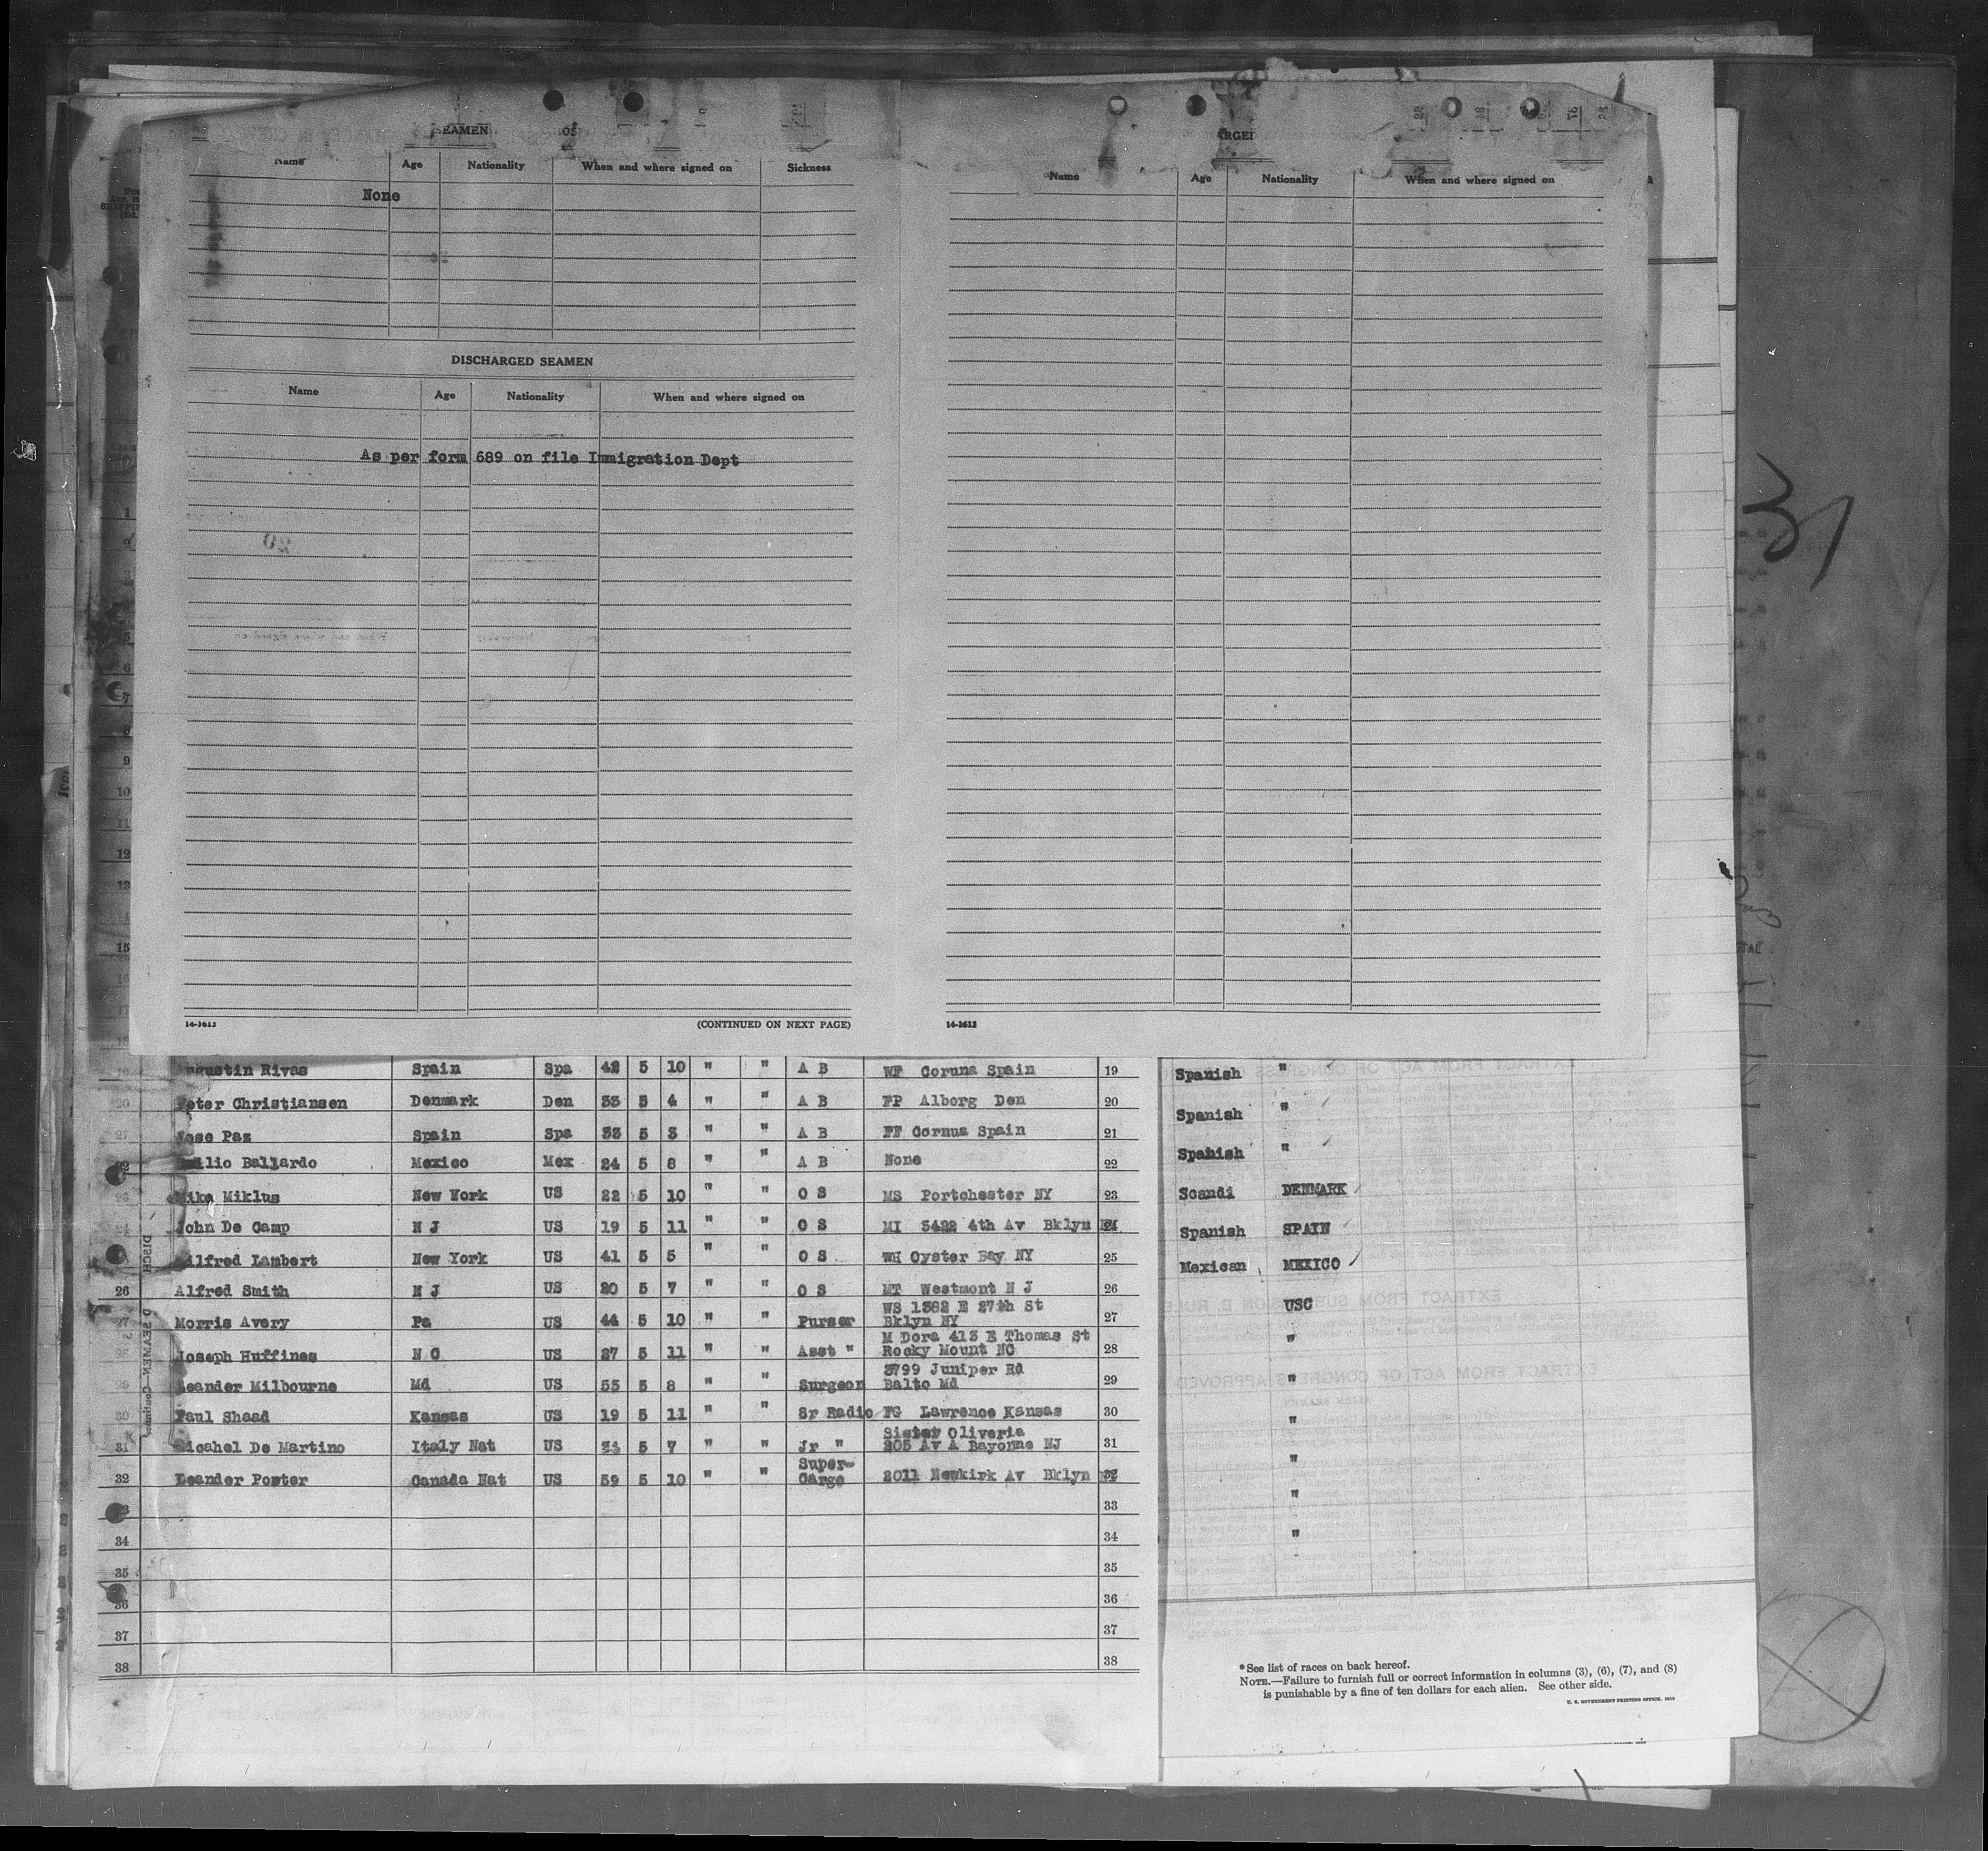 SEAMEN
Name Age Nationality When and where signed on Sickness
None
DISCHARGED SEAMEN
Name Age Nationality When and where signed on
As per form 689 on file Immigration Dept
14-1613 (CONTINUED ON NEXT PAGE)
Name Age Nationality When and where signed on
14-1613
19 Rivas Spain Spa 42 5 10 " " A B WF Coruna Spain 19
20 Peter Christiansen Denmark Den 33 5 4 " " A B FP Alborg Den 20
Jose Paz Spain Spa 33 5 3 " " A B FF Cornua Spain 21
Ballardo Mexico Mex 24 5 8 " " A B None 22
23 Mike Miklus New York US 22 5 10 " " O S MS Portchester NY 23
24 John De Camp N J US 19 5 11 " " O S MI 5422 4th Av Bklyn
Lambert New York US 41 5 5 " " O S WH Oyster Bay NY 25
26 Alfred Smith N J US 20 5 7 " " O S MT Westmont N J 26
27 Morris Avery Pa US 44 5 10 " " Purser WS 1382 E 27th St
Bklyn NY 27
28 Joseph Huffines N C US 27 5 11 " " Asst " M Dora 413 E Thomas St
Rocky Mount NC 28
29 Leander Milbourne Md US 55 5 8 " " Surgeon 3799 Juniper Rd
Balto Md 29
30 Paul Shaad Kansas US 19 5 11 " " Sr Radio FG Lawrence Kansas 30
31 Micahel De Martino Italy Nat US 5 7 " " Jr " Sister Oliveria
205 Av A Bayonne NJ 31
32 Leander Porter Canada Nat US 59 5 10 " " Super-
Cargo 2011 Newkirk Av Bklyn
33
34 34
35 35
36 36
37 37
38 38
Spanish "
Spanish "
Spanish "
Scandi DENMARK
Spanish SPAIN
Mexican MEXICO
USC
"
"
"
"
"
"
*See list of races on back hereof.
NOTE.—Failure to furnish full or correct information in columns (3), (6), (7), and (8)
is punishable by a fine of ten dollars for each alien. See other side.
U. S. GOVERNMENT PRINTING OFFICE